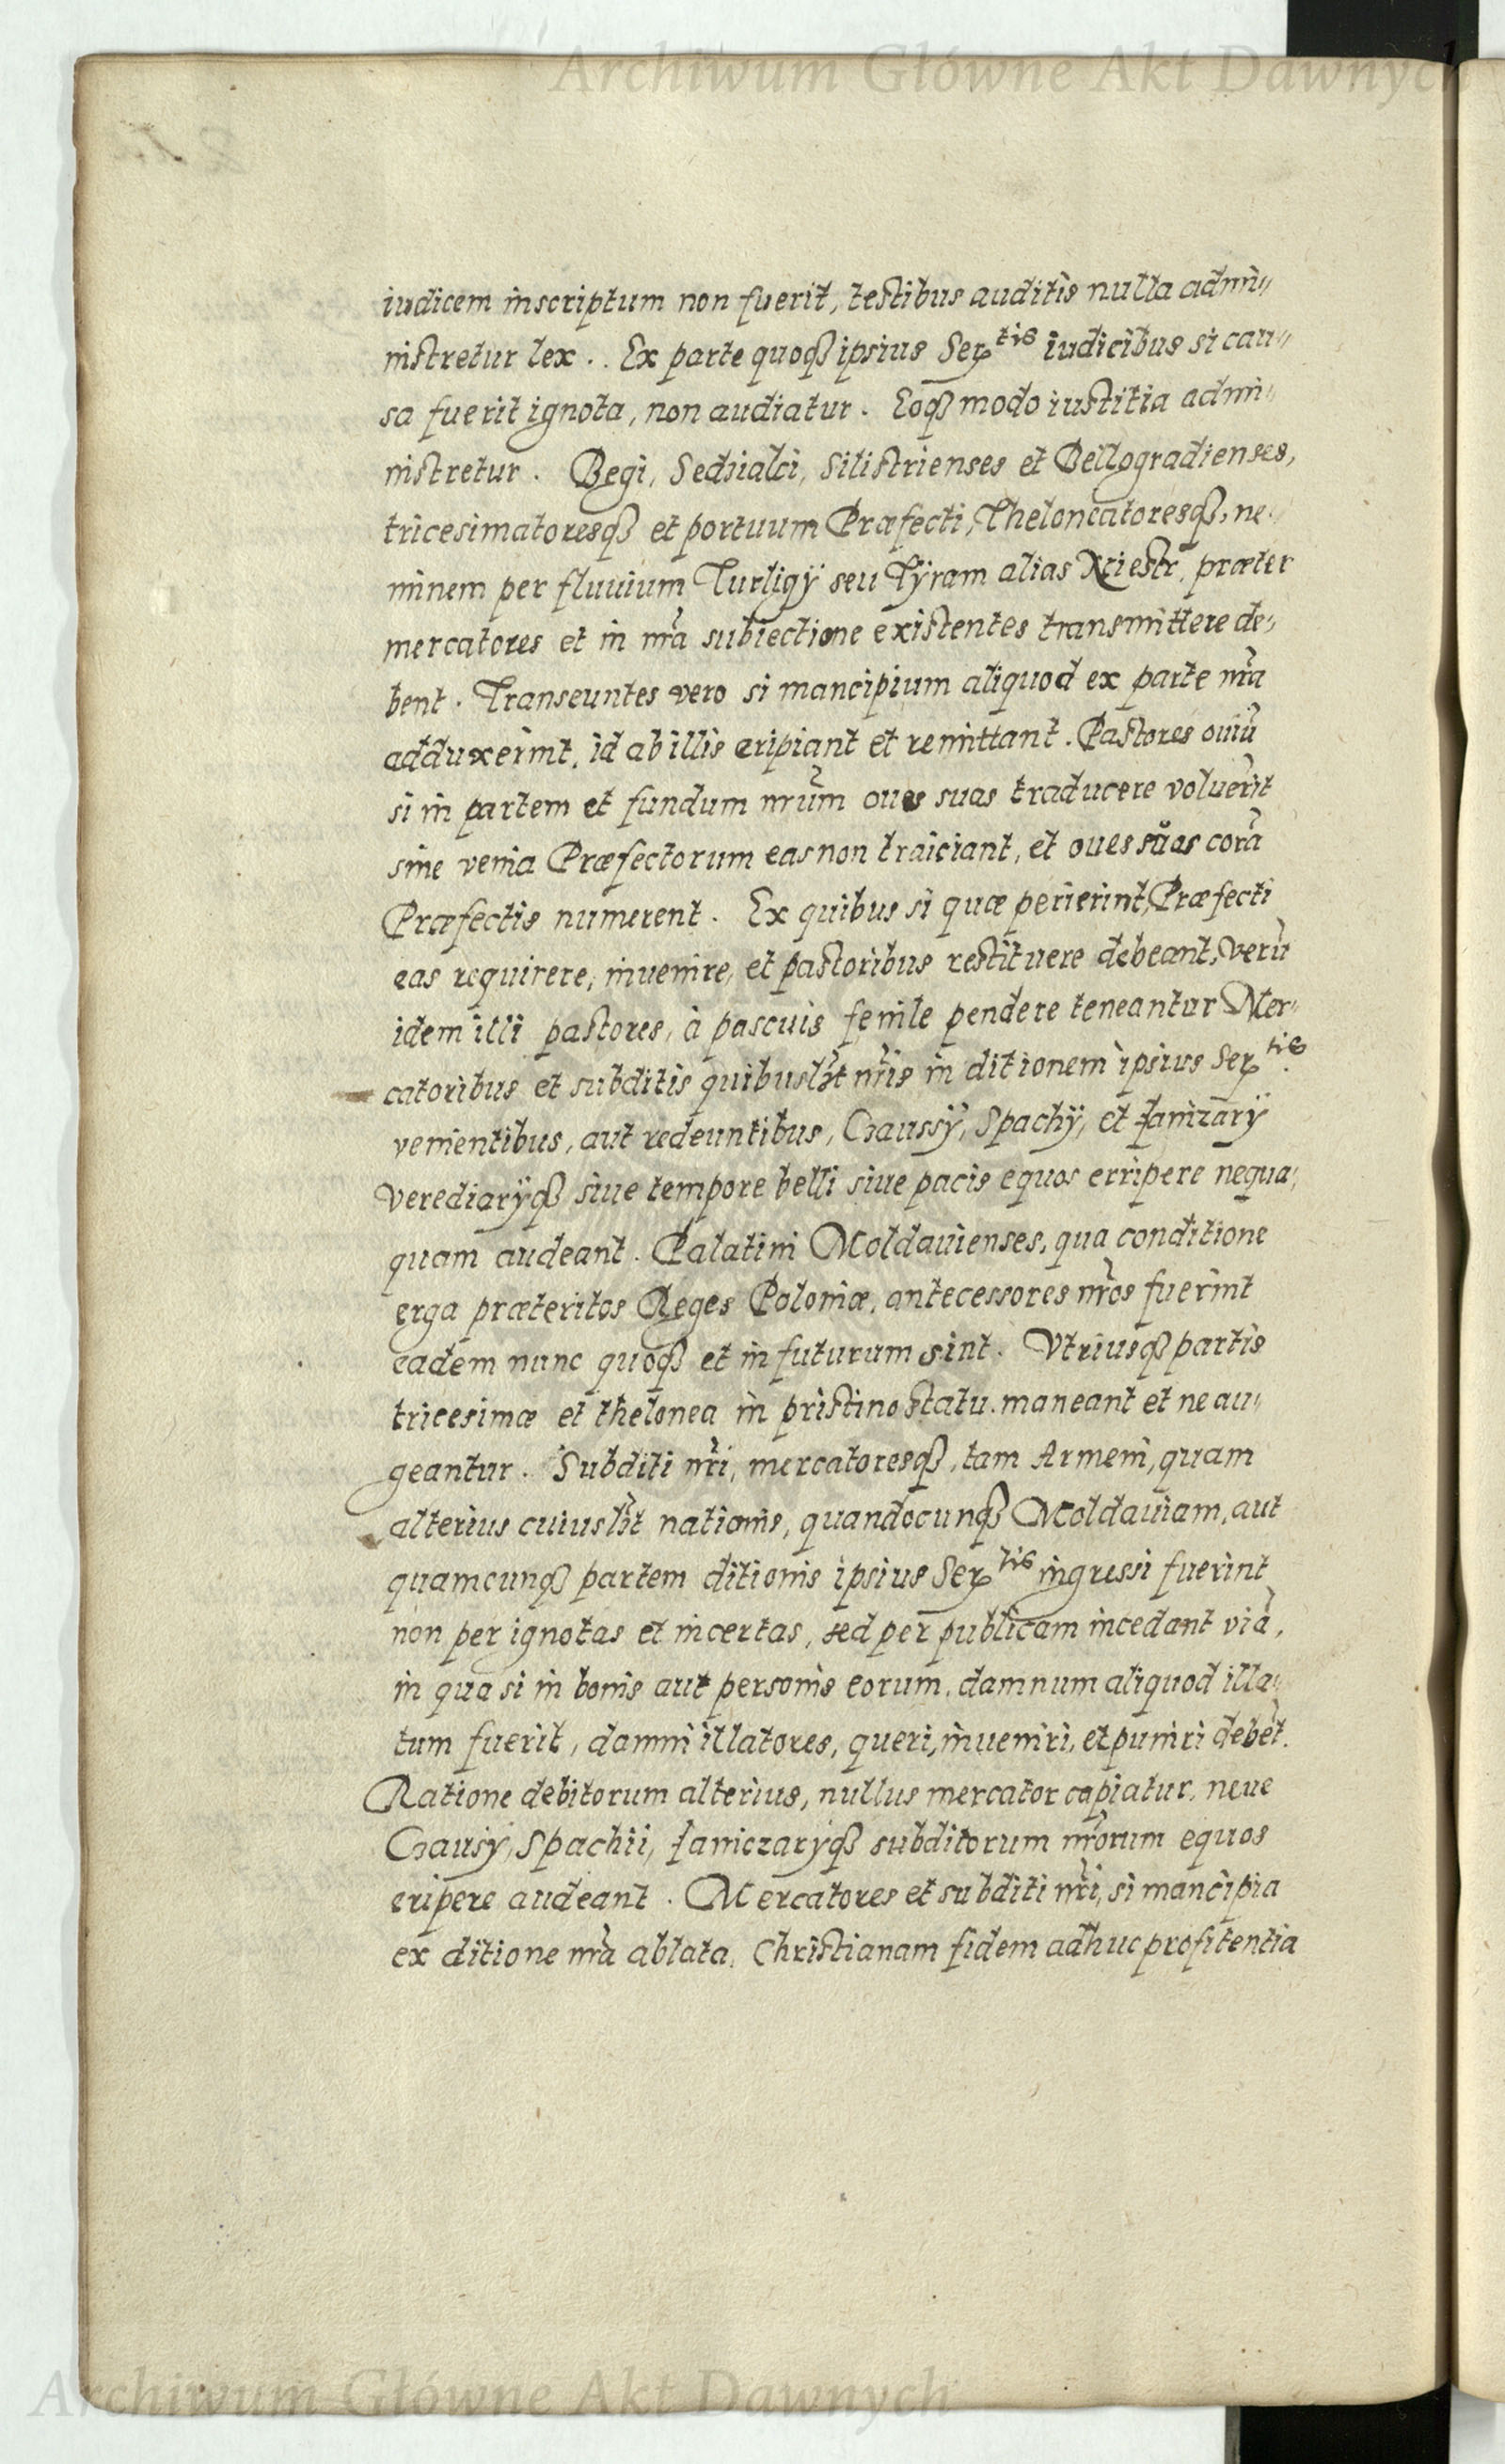 Archiwum Główne Akt Dawnych
iudicem inscriptum non fuerit, testibus auditis nulla admi„
nistretur lex. . Ex parte quoqꝫ ipsius Ser^tis iudicibus si cau„
sa fuerit ignota, non audiatur. Eoqꝫ modo iustitia admi„
nistretur. Begi, Sedsialci, Silistrienses et Bellogradienses,
tricesimatoresqꝫ et portuum Præfecti, Theloneatoresqꝫ, ne„
minem per fluuium Turligÿ seu Tÿram alias Nriestr, præter
mercatores et in nr̃a subiectione existentes transmittere de„
bent. Transeuntes vero si mancipium aliquod ex parte nr̃a
adduxerint, id ab illis eripiant et remittant. Pastores ouiũ
si in partem et fundum nr̃um oues suas traducere voluerĩt
sine venia Præfectorum eas non traiciant, et oues suas corã
Præfectis numerent. Ex quibus si quæ perierint, Præfecti
eas requirere, inuenire, et pastoribus restituere debeant, Verũ
idem illi pastores, à pascuis fenile pendere teneantur Mer„
catoribus et subditis quibuslꝫt nr̃is in ditionem ipsius Ser^tis.
venientibus, aut redeuntibus, Czaussÿ, Spachÿ, et Janizarÿ
Verediarÿqꝫ siue tempore belli siue pacis equos erripere nequa„
quam audeant. Palatini Moldauienses, qua conditione
erga præteritos Reges Poloniæ, antecessores nr̃os fuerint
eadem nunc quoqꝫ et in futurum sint. Vtriusqꝫ partis
tricesimæ et thelonea in pristino statu. maneant et ne au„
geantur. Subditi nr̃i, mercatoresqꝫ, tam Armeni, quam
alterius cuiuslꝫt nationis, quandocunqꝫ Moldauiam, aut
quamcunqꝫ partem ditionis ipsius Ser^tis ingressi fuerint
non per ignotas et incertas, sed per publicam incedant viã,
in qua si in bonis aut personis eorum, damnum aliquod illa„
tum fuerit, damni illatores, queri, inueniri, et puniri debẽt.
Ratione debitorum alterius, nullus mercator capiatur, neue
Czausÿ, Spachii, Janiczarÿqꝫ subditorum nr̃orum equos
eripere audeant. Mercatores et subditi nr̃i, si mancipia
ex ditione nr̃a ablata, Christianam fidem adhuc profitentia
Archiwum Główne Akt Dawnych